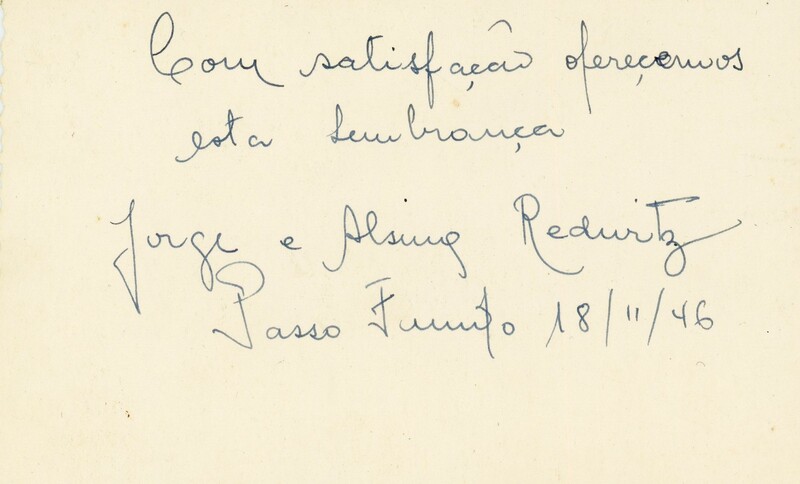 Com satisfação ofereçemos
esta lembrança
Jorge e
Passo Fundo 18/11/46